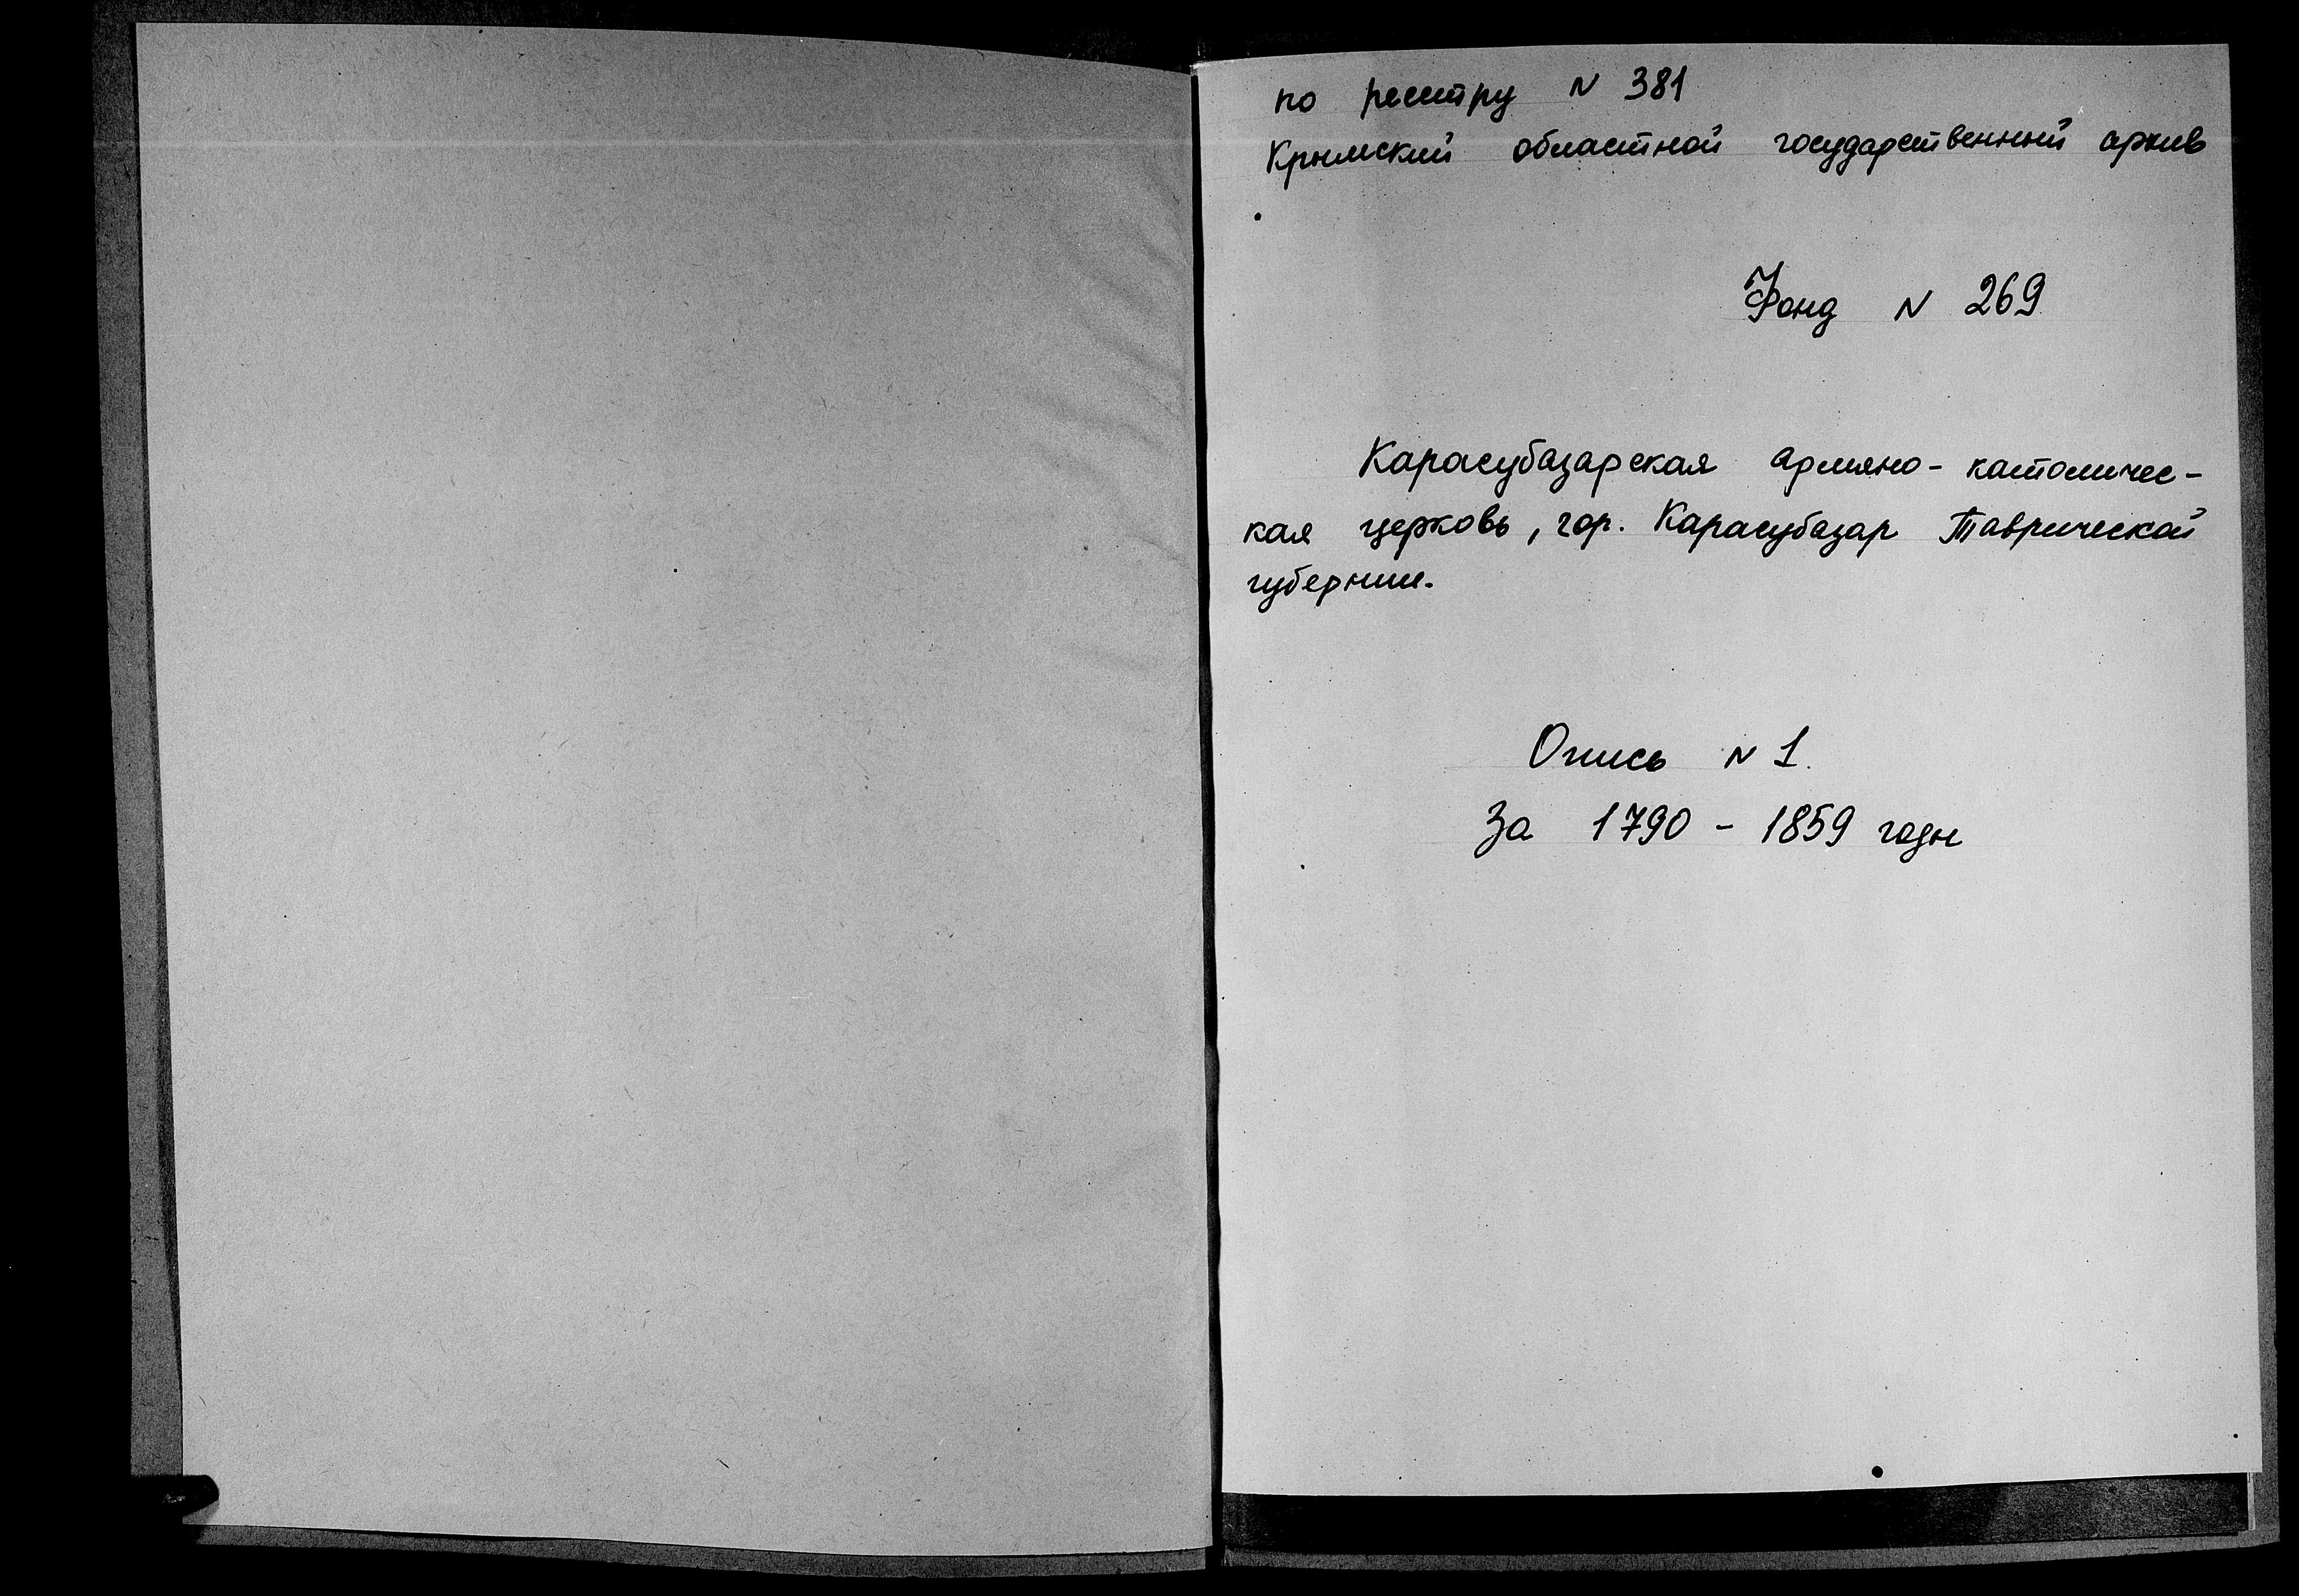 по реестру N 381
Крымский областной государственный архив
Фонд N 269
Карасубазарская армяно-католичес-
кая церковь, гор. Карасубазар Таврической
губернии.
Опись N 1.
За 1790 - 1859 годы